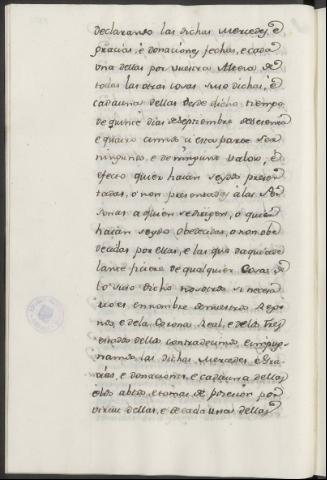 declarando las dichas mercedes, é
gracias, é donaciones fechas, e cada
una dellas por vuestra Alteza de
todas las otras cosas suso dichas, é
cada una dellas desde dicho tiempo
de quince dias de septiembre de sesenta
e quatro annos á esta parte ser
ningunas, e de ninguno valor, é
efecto quier haian seydo presen
tadas, o non presentadas á las Per
sonas a quien se dirigen, o quier
haian seydo obedecidas, o non obe
decidas por ellas, e las que daqui ade
lante ficiere de qualquier cosa de
lo suso dicho nosotros si necesa
rio es en nombre de vuestros Rey
nos, e de la Corona Real, e de los Tres
estados dellos contradecimos, e impug
namos las dichas mercedes, é Gra
cias, e donaciones, e cada una dellas
e los abtos, e tomas de posesion por
virtud dellas, e de cada una dellas